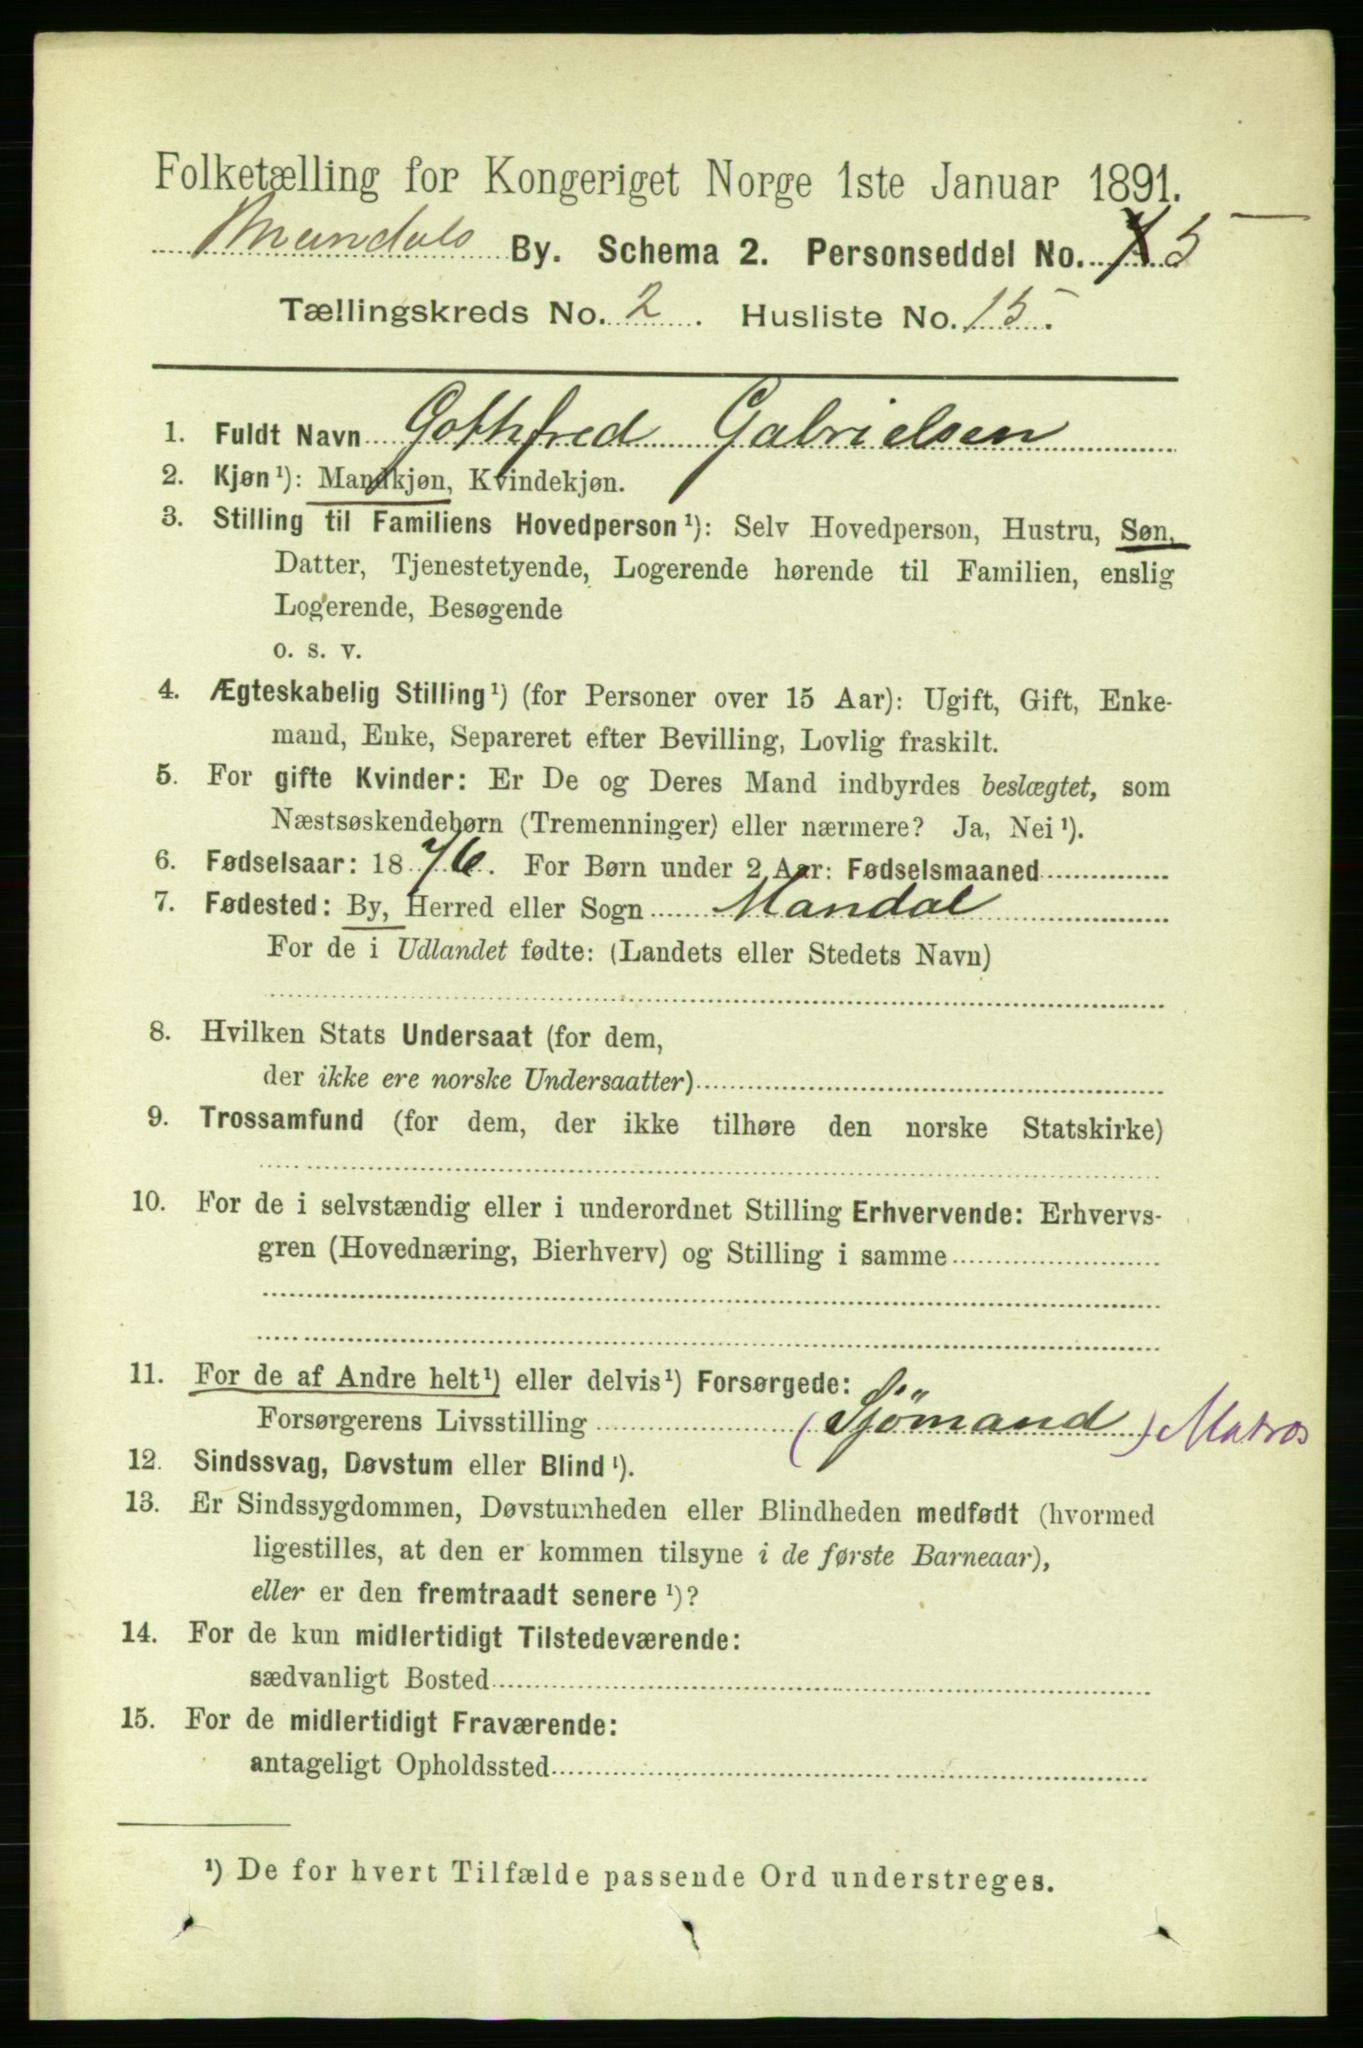 Folketælling for Kongeriget Norge 1ste Januar 1891.
Mandals By. Schema 2. Personseddel No. 5
Tællingskreds No. 2. Husliste No. 15.
1. Fuldt Navn Gothfred Gabrielsen
2. Kjøn¹): Mandkjøn, Kvindekjøn.
3. Stilling til Familiens Hovedperson¹): Selv Hovedperson, Hustru, Søn,
Datter, Tjenestetyende, Logerende hørende til Familien, enslig
Logerende, Besøgende
o. s. v.
4. Ægteskabelig Stilling¹) (for Personer over 15 Aar): Ugift, Gift, Enke-
mand, Enke, Separeret efter Bevilling, Lovlig fraskilt.
5. For gifte Kvinder: Er De og Deres Mand indbyrdes beslægtet, som
Næstsøskendebørn (Tremenninger) eller nærmere? Ja, Nei¹).
6. Fødselsaar: 1876. For Børn under 2 Aar: Fødselsmaaned
7. Fødested: By, Herred eller Sogn Mandal
For de i Udlandet fødte: (Landets eller Stedets Navn)
8. Hvilken Stats Undersaat (for dem,
der ikke ere norske Undersaatter)
9. Trossamfund (for dem, der ikke tilhøre den norske Statskirke)
10. For de i selvstændig eller i underordnet Stilling Erhvervende: Erhvervs-
gren (Hovednæring, Bierhverv) og Stilling i samme
11. For de af Andre helt¹) eller delvis¹) Forsørgede:
Forsørgerens Livsstilling (Sjömand) Matros
12. Sindssvag, Døvstum eller Blind¹).
13. Er Sindssygdommen, Døvstumheden eller Blindheden medfødt (hvormed
ligestilles, at den er kommen tilsyne i de første Barneaar),
eller er den fremtraadt senere¹)?
14. For de kun midlertidigt Tilstedeværende:
sædvanligt Bosted
15. For de midlertidigt Fraværende:
antageligt Opholdssted
¹) De for hvert Tilfælde passende Ord understreges.